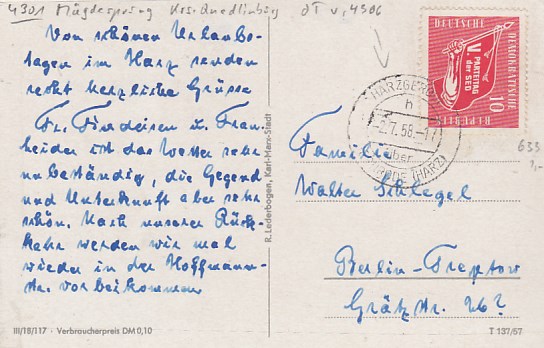 4301 Mägdesprung Krs. Quedlinburg OT v. 4506
Von schönen Urlaubs-
tagen im Harz senden
recht herzliche Grüsse
Fr. Findeisen u. Frau
leider ist das Wetter sehr
unbeständig, die Gegend
und Unterkunft aber sehr
schön. Nach unserer Rück-
kehr werden wir mal
wieder in der Hoffmann-
str. vorbeikommen
R. Lederbogen, Karl-Marx-Stadt
DEUTSCHE DEMOKRATISCHE
REPUBLIK
V. PARTEITAG
der SED
10
HARZGERODE
h
-2.7.58.-17
über
(HARZ)
633
Familie
Walter Schlegel
Berlin-Treptow
Grätzstr. 26?
III/18/117 · Verbraucherpreis DM 0,10
T 137/57